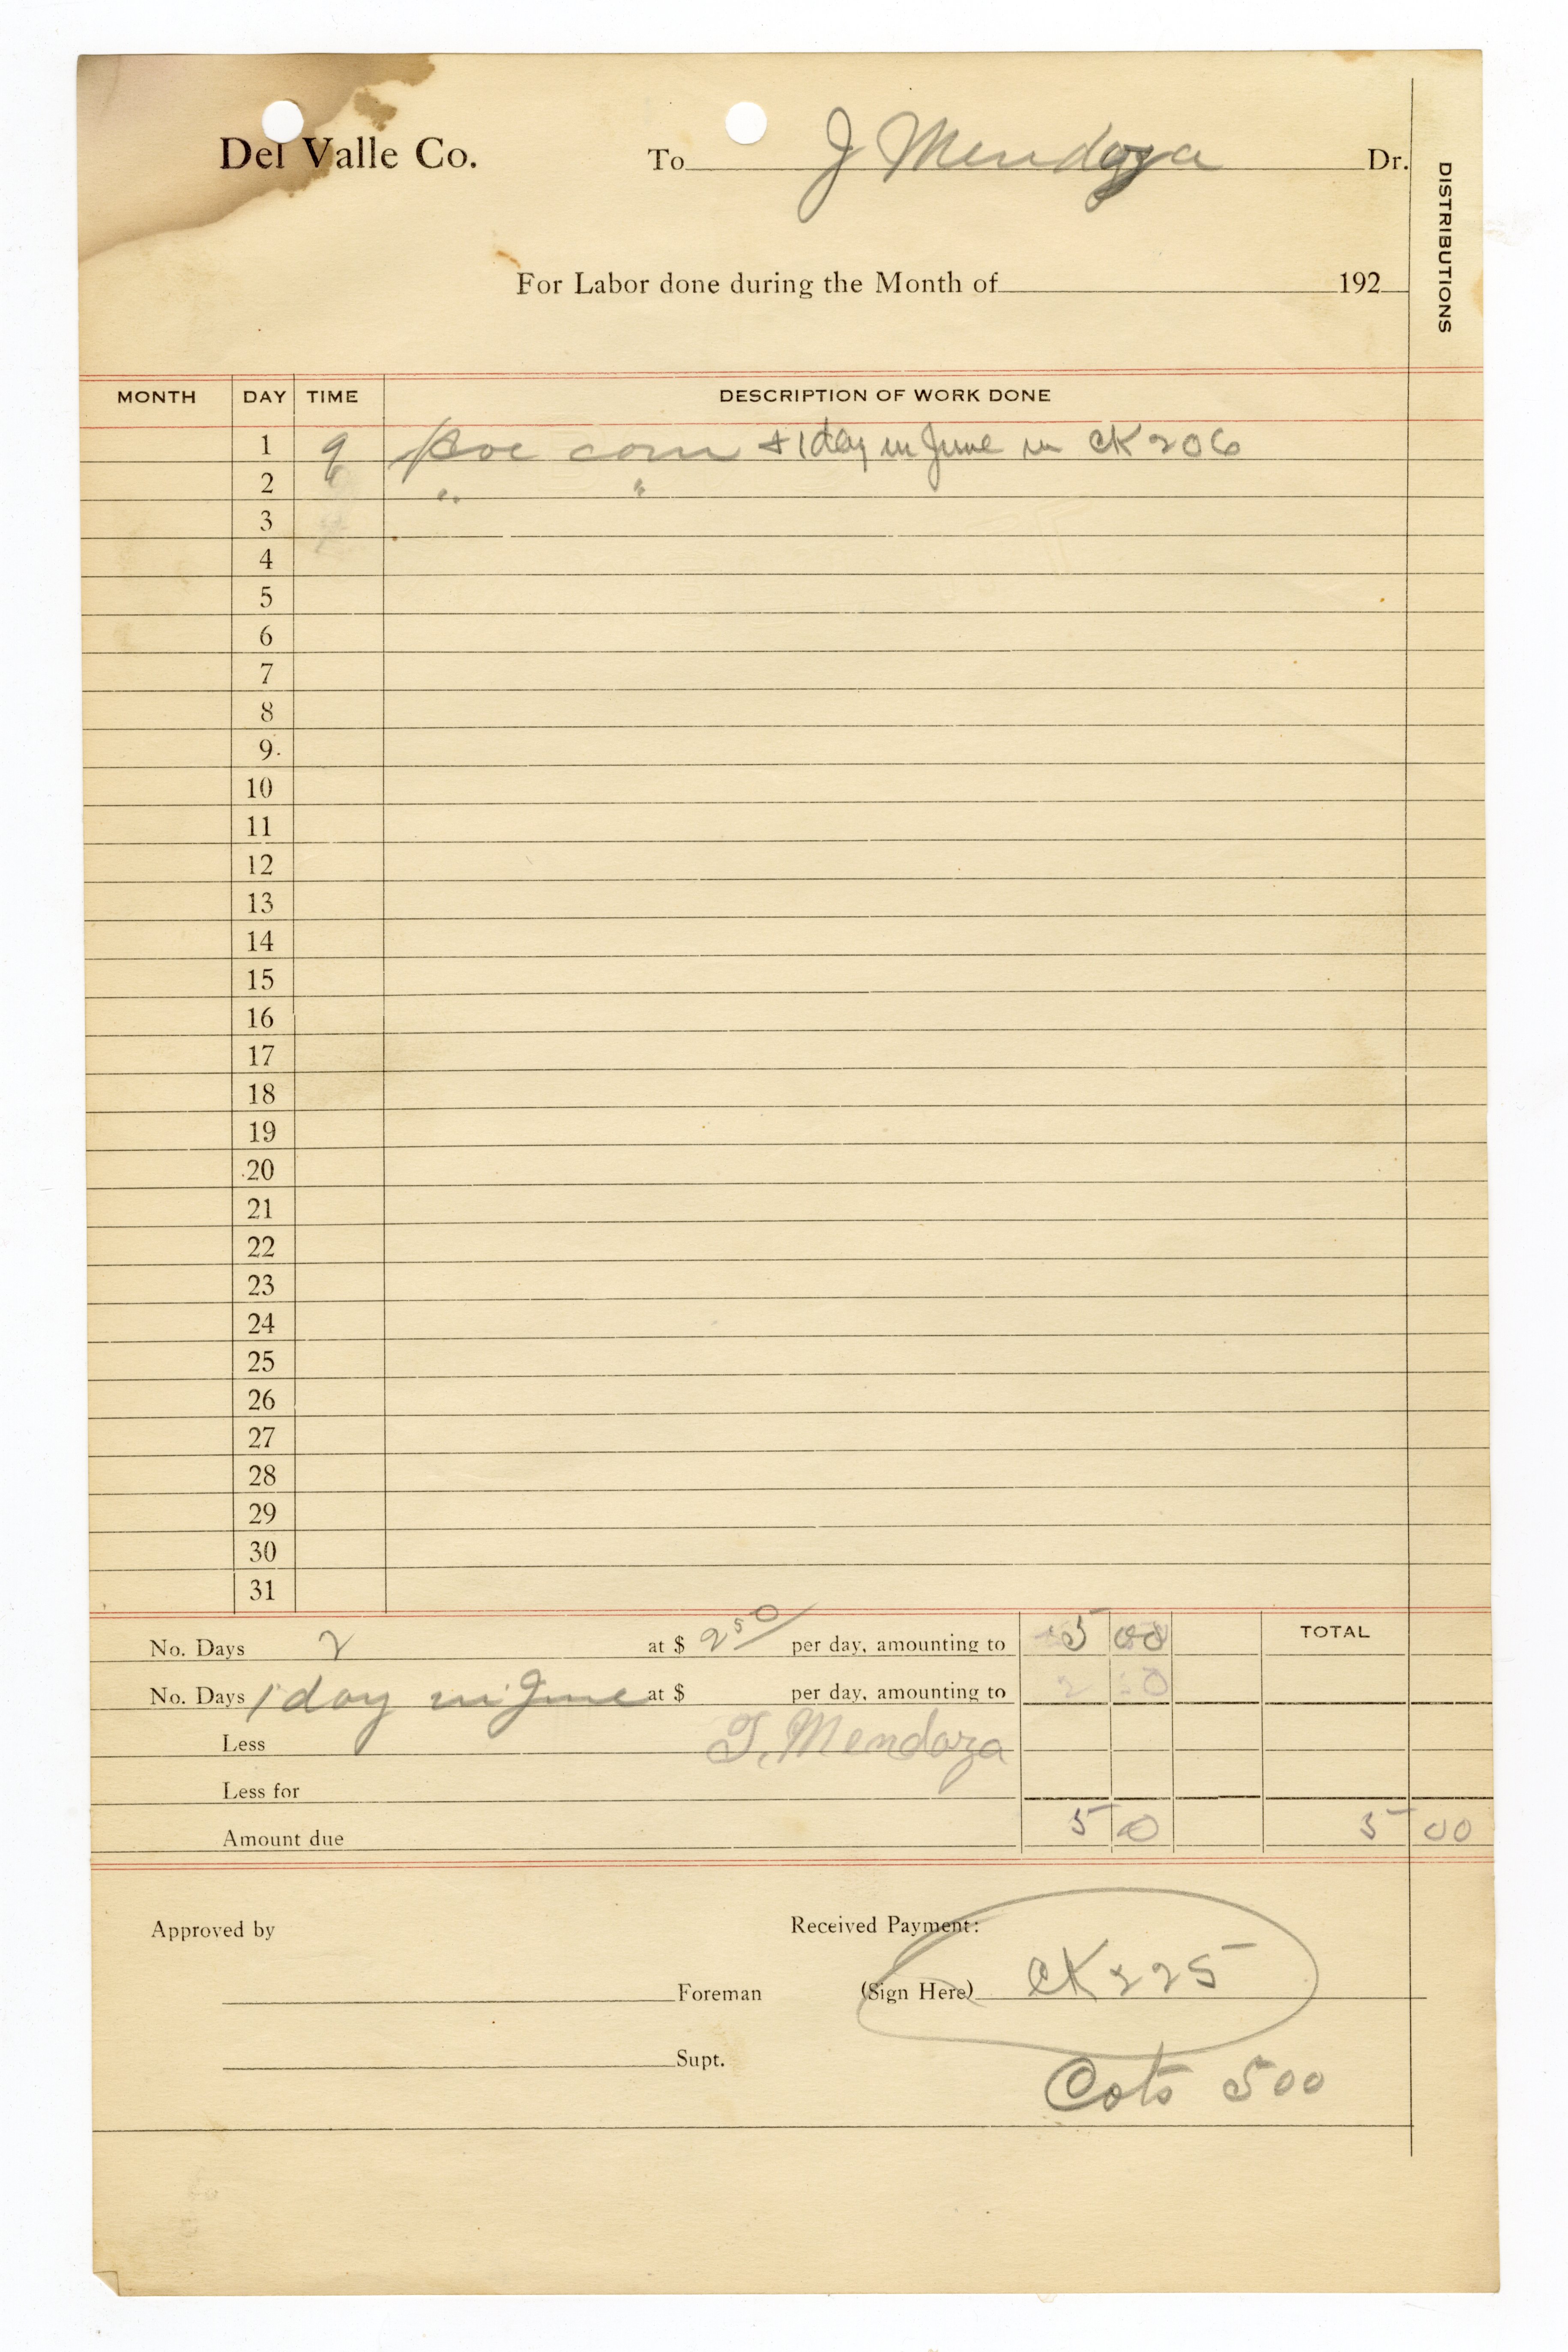 Del Valle Co. To J Mendoza Dr.
DISTRIBUTIONS
For Labor done during the Month of 192
MONTH DAY TIME DESCRIPTION OF WORK DONE
1 9 corn + 1 day in June in CK 206
2 " "
3
4
5
6
7
8
9
10
11
12
13
14
15
16
17
18
19
20
21
22
23
24
25
26
27
28
29
30
31
No. Days 2 at $ 2 50 per day, amounting to 5 00 TOTAL
No. Days 1 day in June at $ per day, amounting to 2 50
Less J. Mendoza
Less for
Amount due 5 0 5 00
Approved by Received Payment:
Foreman (Sign Here) CK 225
Supt.
Cots 500